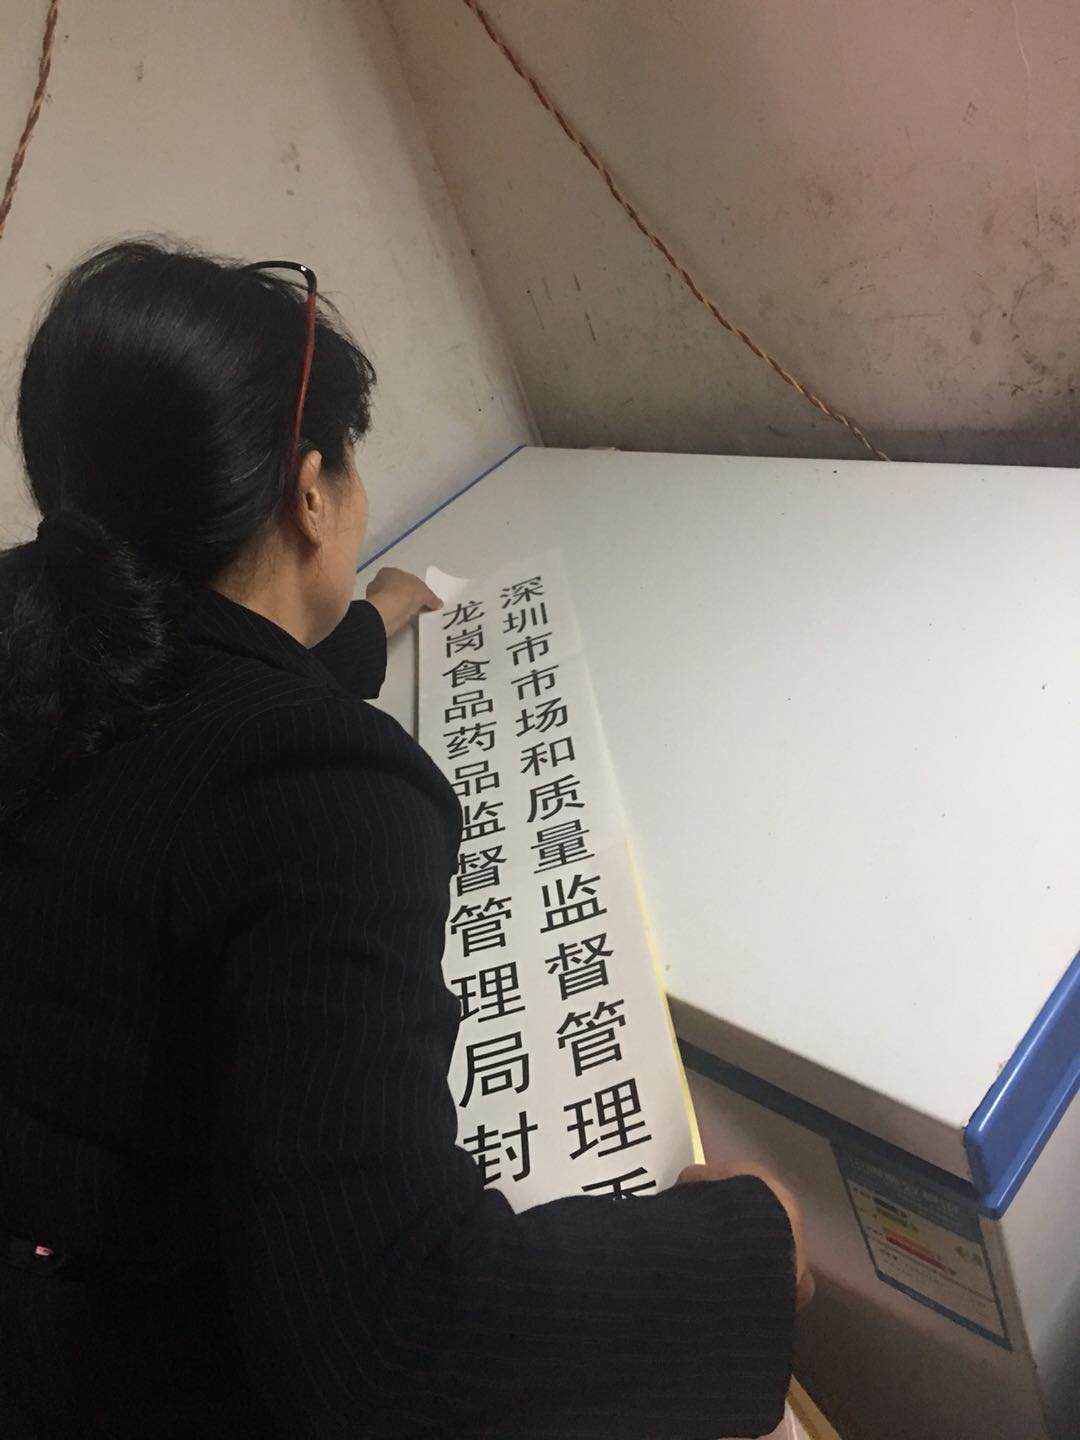 深圳市市场和质量监督管理
龙岗食品药品监督管理局封